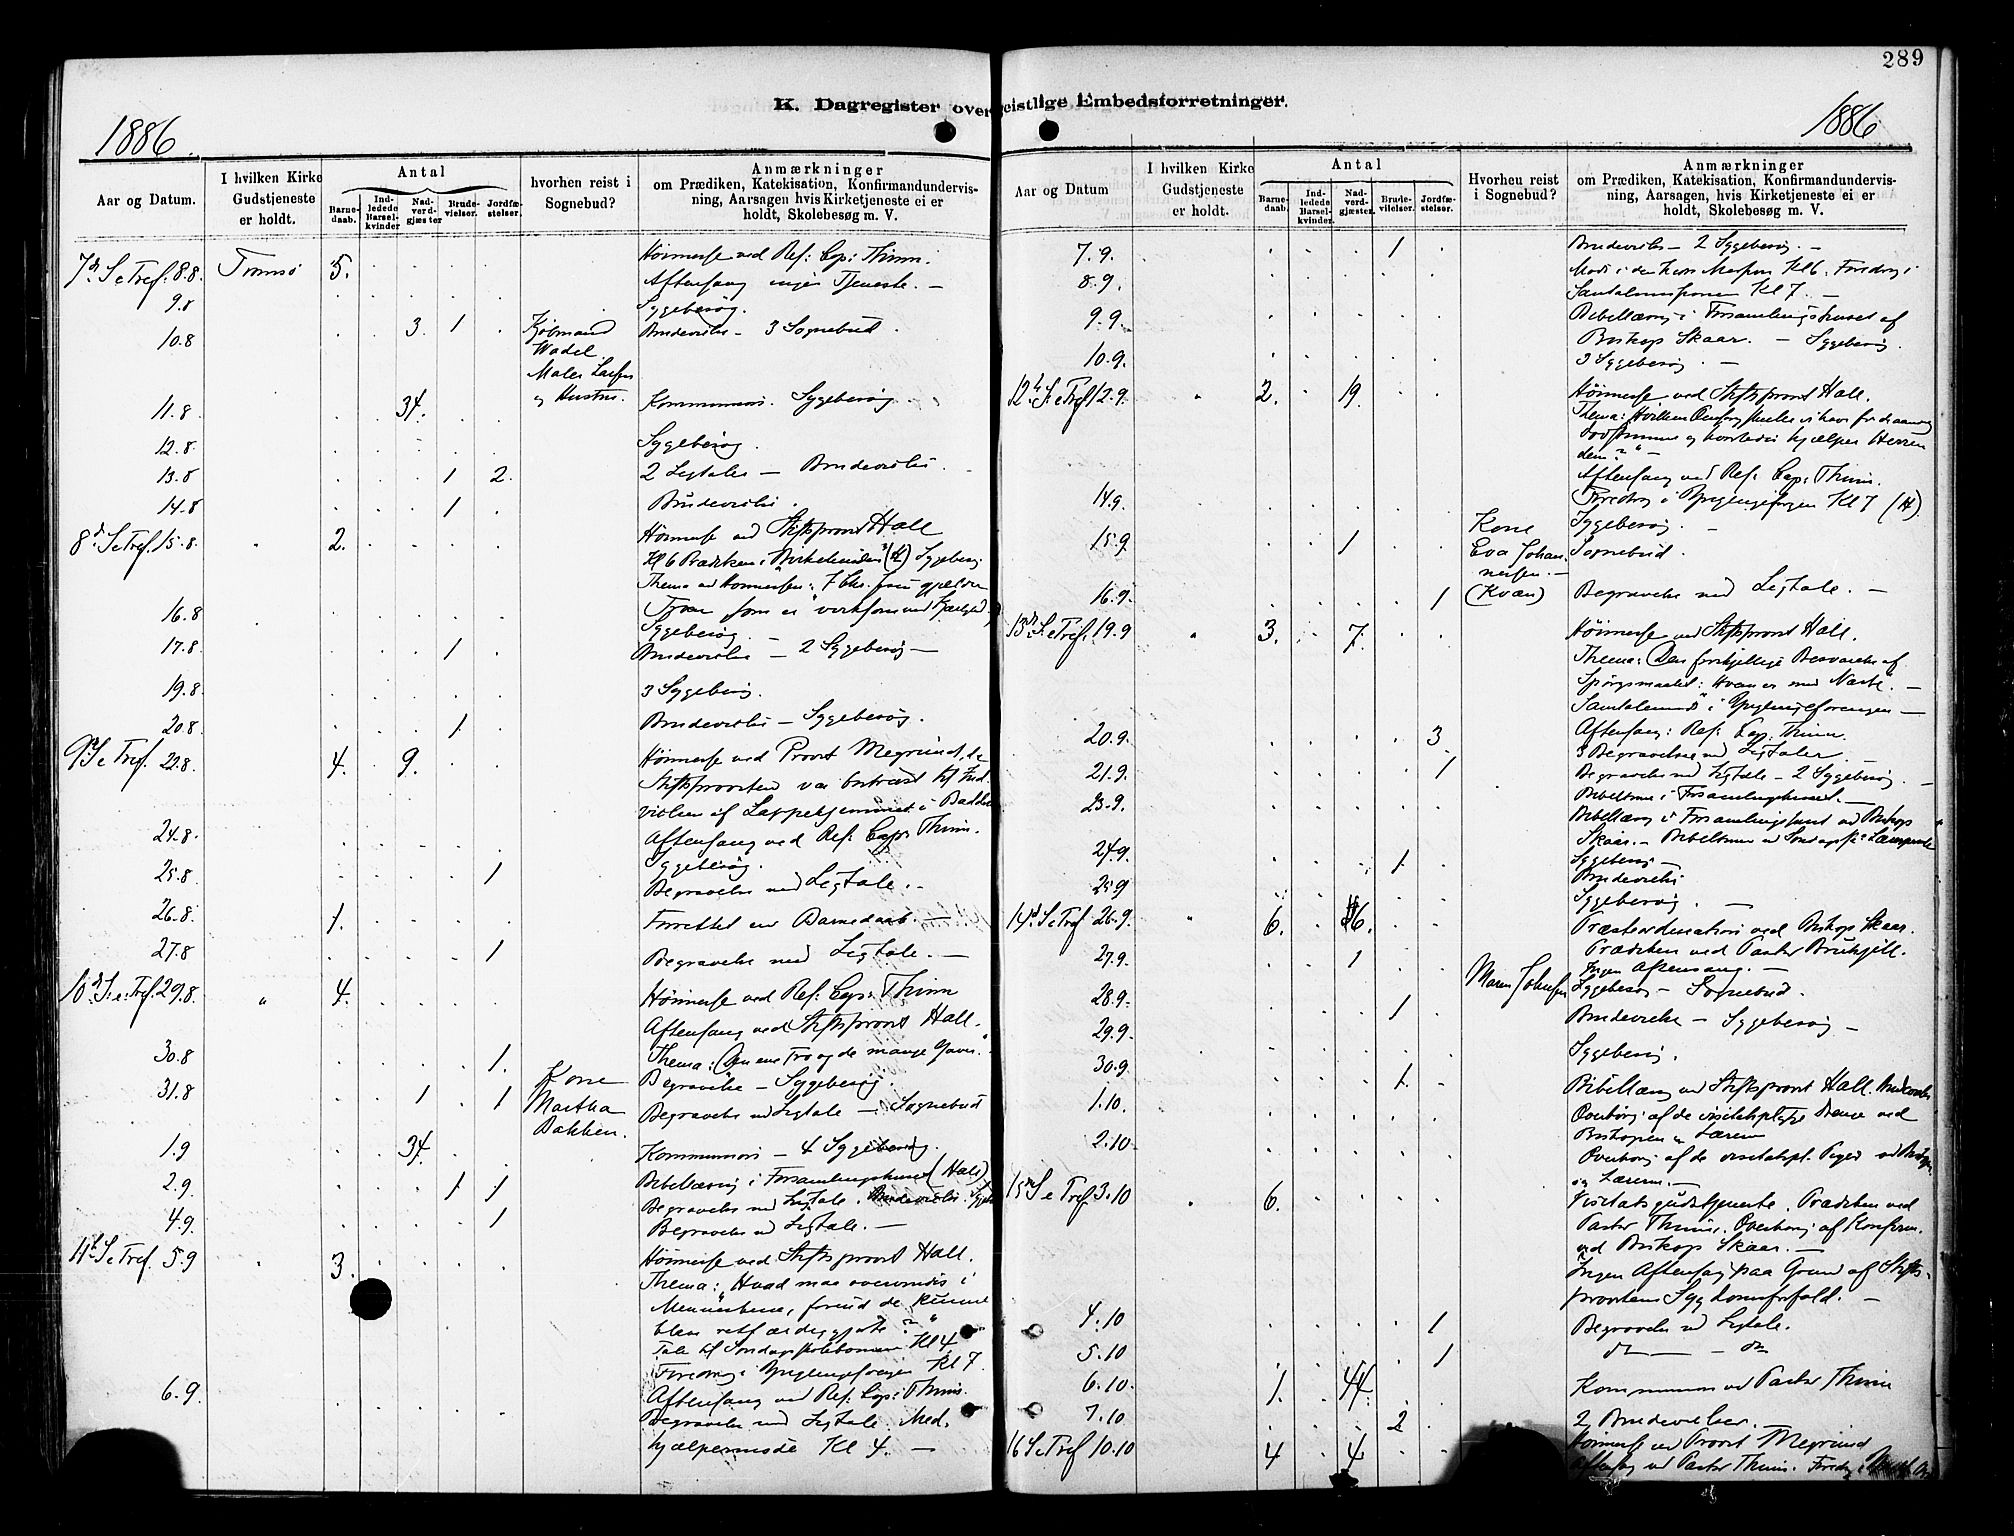 289
K. Dagregister over geistlige Embedsforretninger.
1886.
Aar og Datum.
I hvilken Kirke Gudstjeneste er holdt.
Antal
Barnedaab.
Indledede Barselkvinder
Nadverdgjæster
Brudevielser.
Jordfæstelser.
hvorhen reist i Sognebud?
Anmærkninger
om Prædiken, Katekisation, Konfirmandundervisning, Aarsagen hvis Kirketjeneste ei er holdt, Skolebesøg m. V.
7d S. e Tref. 8.8. Tromsø 5. Høimesse ved Res: Cap: Thinn.
Aftensang ingen Tjeneste. –
9.8 Sygebesøg.
10.8 3. 1 Kjøbmand Brudevielse – 3 Sognebud.
Wadel
Maler Larsen
og Hustru.
11.8 34. Kommunion. Sygebesøg.
12.8. Sygebesøg.
13.8 1 2. 2 Ligtaler – Brudevielse.
14.8 1 Brudevielse.
8d S. e Tref. 15.8. " 2. Høimesse ved Stiftsprovst Hall
Kl 6 (H) Sygebesøg
16.8 Troen som er virksom ved Kjærlighed
Sygebesøg. –
17.8. 1 Brudevielse – 2 Sygebesøg –
19.8. 3 Sygebesøg.
20.8 1 Brudevielse – Sygebesøg.
9d S e Tref. 22.8. 4. 9. Høimesse ved Provst Megrund, da
Stiftsprovsten var
af Lappehjemmet i
24.8. Aftensang ved Res: Cap: Thinn.
Sygebesøg.
25.8 1 Begravelse med Ligtale. –
26.8. 1. Forrettet en Barnedaab. –
27.8 1 Begravelse med Ligtale. –
10d S. e. Tref. 29.8. " 4. Høimesse ved Res: Cap: Thinn
Aftensang ved Stiftsprovst Hall.
Thema: Den ene Tro og de mange Gaver."
30.8 1. Kone Begravelse – Sygebesøg.
31.8 1 1 Martha Begravelse med Ligtale – Sognebud
Bakken.
1.9 34. Kommunion – 4 Sygebesøg.
2.9. 1 1 Bibellæsning i Forsamlingshuset (Hall)
Begravelse med Ligtale. Brudevielse.
4.9. 1 Begravelse m Ligtale. –
11d S e Tref. 5.9 " 3. Høimesse ved Stiftsprovst Hall.
Thema: "Hvad maa overvindes i
Menneskene, forud de kunne
blive retfærdiggjorte?"
Tale til Søndagsskolebørnene Kl 4.
Foredrag i Ynglingeforeningen Kl 7.
6.9. Aftensang ved Res: Cap: Thinn.
Begravelse med Ligtale. Med.
hjælpermøde Kl 4. –
1886
Aar og Datum
I hvilken Kirke Gudstjeneste er holdt.
Antal
Barnedaab.
Indledede Barselkvinder.
Nadverdgjæster.
Brudevielser.
Jordfæstelser.
Hvorheu reist i Sognebud?
Anmærkninger
om Prædiken, Katekisation, Konfirmandundervisning, Aarsagen, hvis Kirketjeneste ei er holdt, Skolebesøg m. V.
7.9. 1 Brudevielse – 2 Sygebesøg. –
8.9. Kl 6. Foredrag i
Santalmissionen Kl 7. –
9.9. Bibellæsning i Forsamlingshuset af
Biskop Skaar. – Sygebesøg.
10.9. 3 Sygebesøg. –
12d S. e Tref 12.9. " 2. 19. Høimesse ved Stiftsprovst Hall.
Thema:
og hvorledes hjælper Herren
dem?" –
Aftensang ved Res: Cap: Thinn.
14.9. Foredrag i Ynglingeforeningen Kl 7 (H)
Kone Sygebesøg. –
15.9. 1 Eva Johannesen. – Sognebud.
16.9. 1 (Kvæn) Begravelse med Ligtale. –
13d S. e Tref. 19.9 " 3. 7. Høimesse ved Stiftsprovst Hall.
Thema: Den forskjellige Besvarelse af
Spørgsmaalet: Hvem er min Næste". –
i Ynglingeforeningen –
20.9. 3. Aftensang: Res: Cap: Thinn.
3 Begravelser m Ligtaler. –
21.9. 1 Begravelse med Ligtale – 2 Sygebesøg. –
23.9. Bibeltime i Forsamlingshuset. –
Bibellæsning i Forsamlingshuset ved Biskop
Skaar. –
24.9. 1. Sygebesøg –
25.9 Brudevielse
Sygebesøg. –
14d S. e Tref 26.9. " 6. 16. Præsteordination ved Biskop Skaar.
Prædiken ved Pastor
27.9. 1 Ingen Aftensang. –
Maren Johnsen Sygebesøg – Sognebud.
28.9. 1 Brudevielse – Sygebesøg –
29.9. Sygebesøg.
30.9 1. Bibellæsn. ved Stiftsprovst Hall. Brudevielse
1.10. Overhøring af de visitatspligtige Drenge ved
Biskopen og Læreren
2.10 Overhøring af de visitatspl. Piger ved
og Læreren. –
15d S e Tref. 3.10 " 6. Visitatsgudstjeneste. Prædiken ved
Pastor Thinn. Overhøring af Konfirm.
ved Biskop Skaar. –
Ingen Aftensang paa Grund af Stifts-
provstens Sygdomsforfald. –
4.10 1 Begravelse m Ligtale.
5.10 1 do — – do
6.10. 1. 44. Kommunion ved Pastor Thinn
7.10 2 2 Brudevielser. –
16 S. e Tref 10.10 4 4. Høimesse ved Provst Megrund
Aftensang ved Pastor Thinn.